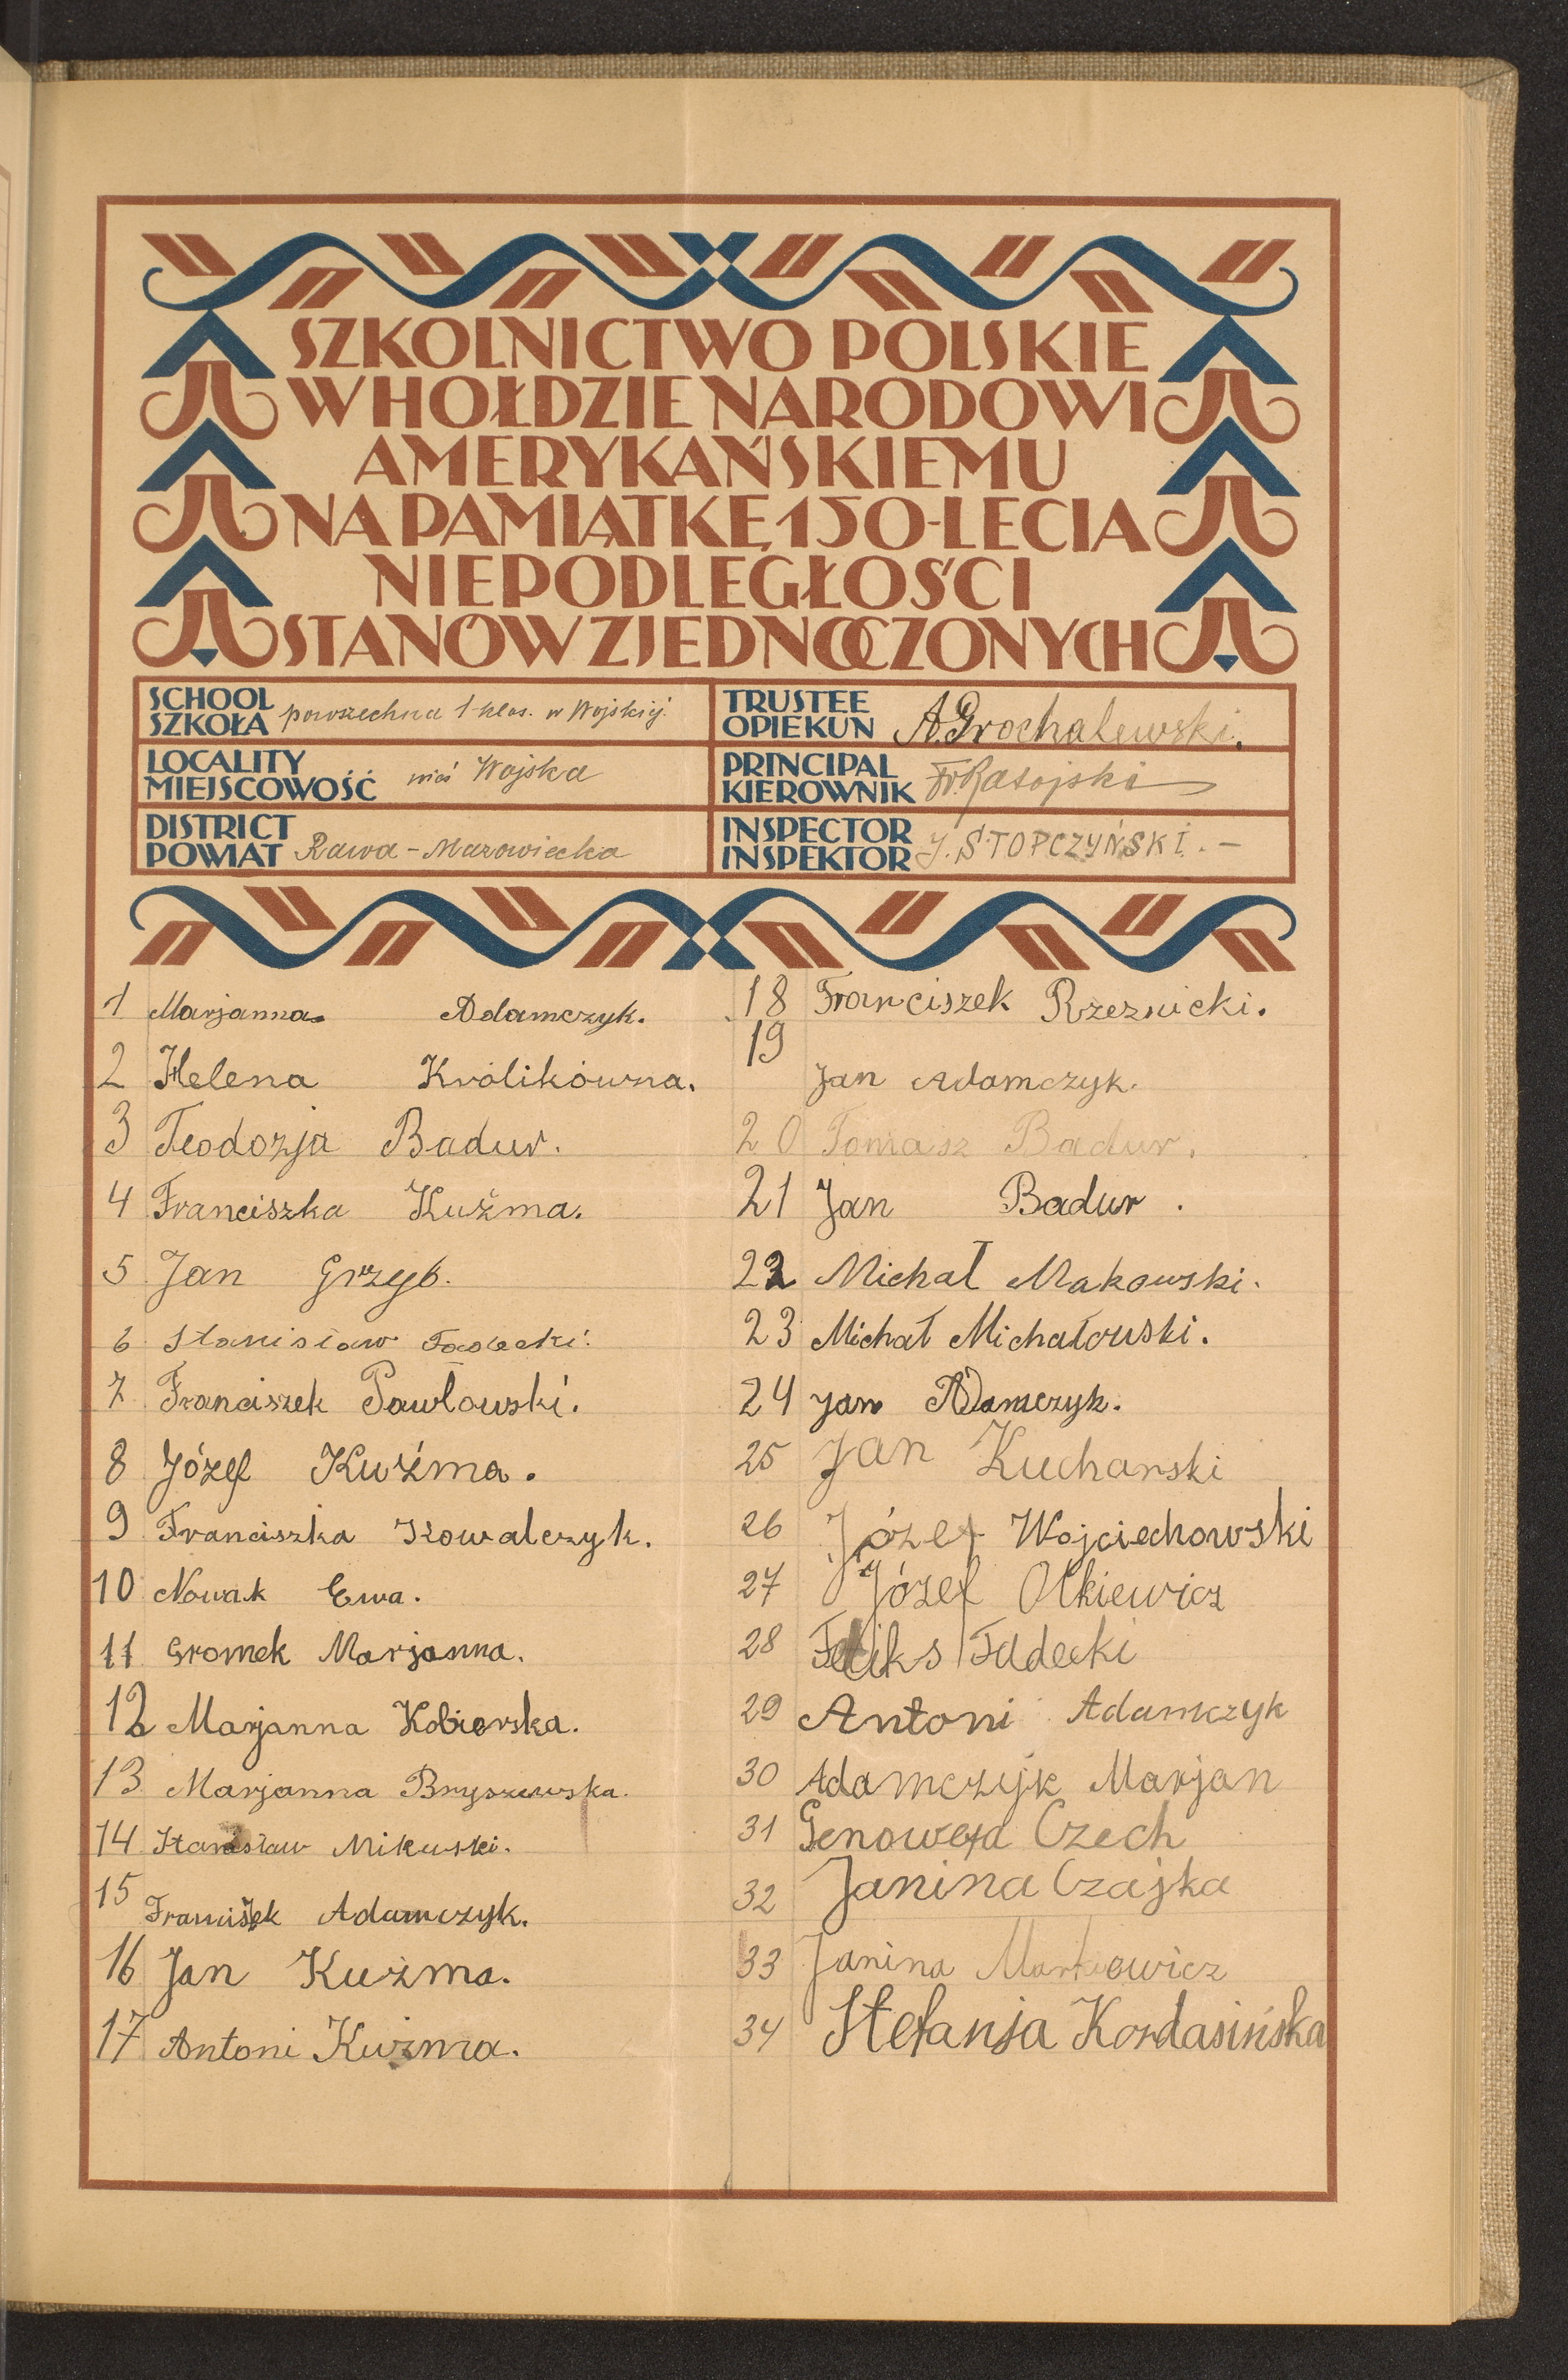 SZKOLNICTWO POLSKIE
W HOŁDZIE NARODOWI
AMERYKAŃSKIEMU
NA PAMIĄTKĘ 150-LECIA
NIEPODLEGŁOŚCI
STANÓW ZJEDNOCZONYCH
SCHOOL
SZKOŁA powszechna 1-klas. w Wojskiej.
LOCALITY
MIEJSCOWOŚĆ wieś Wojska
DISTRICT
POWIAT Rawa-Mazowiecka
TRUSTEE
OPIEKUN A. Grochalewski.
PRINCIPAL
KIEROWNIK Fr.
INSPECTOR
INSPEKTOR J. STOPCZYŃSKI.-
1 Marjanna Adamczyk.
2 Helena Królikówna.
3 Teodozja Badur.
4 Franciszka Kuźma.
5 Jan Grzyb.
6 Stanisław Fadecki.
7 Franciszek Pawłowski.
8 Józef Kuźma.
9 Franciszka Kowalczyk.
10 Nowak Ewa.
11 Gromek Marjanna.
12 Marjanna Kobierska.
13 Marjanna Bryszewska.
14 Stanisław Mikuski.
15 Franciszek Adamczyk.
16 Jan Kuźma.
17 Antoni Kuźma.
18 Franciszek Rzeznicki.
19 Jan Adamczyk.
20 Tomasz Badur.
21 Jan Badur.
22 Michał Makowski.
23 Michał Michałowski.
24 Jan Adamczyk.
25 Jan Kucharski
26 Józef Wojciechowski
27 Józef Olkiewicz
28 Feliks Fadecki
29 Antoni Adamczyk
30 Adamczyk Marjan
31 Genowefa Czech
32 Janina Czajka
33 Janina Markiewicz
34 Stefanja Kordasińska